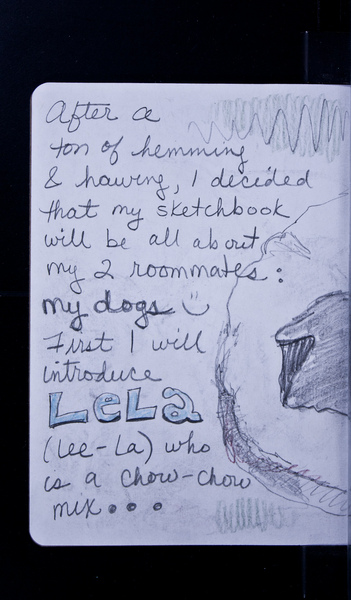 After a
ton of hemming
& hawing, I decided
that my sketchbook
will be all about
my 2 roommates:
my dogs
First I will
introduce
LeLa
(Lee-La) who
is a chow-chow
mix...